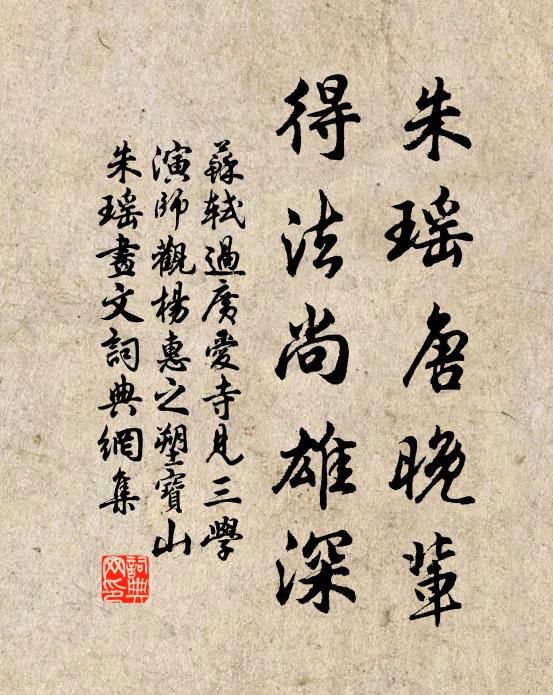 朱瑶唐晚輩
得法尚雄深
蘇軾過廣愛寺見三學
演師觀楊惠之塑寶山
朱瑶畫文詞典網集
詞典網印